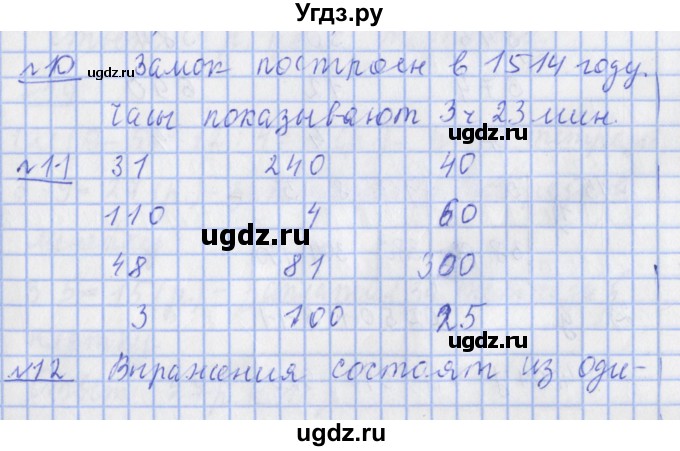 Угдз.ру
№10 Замок построен в 1514 году.
Часы показывают 3 ч 23 мин.
№11 31 240 40
110 4 60
48 81 300
3 100 25
№12 Выражения состоят из оди-
ugdz.ru
ugdz.ru
ugdz.ru
ugdz.ru
ugdz.ru